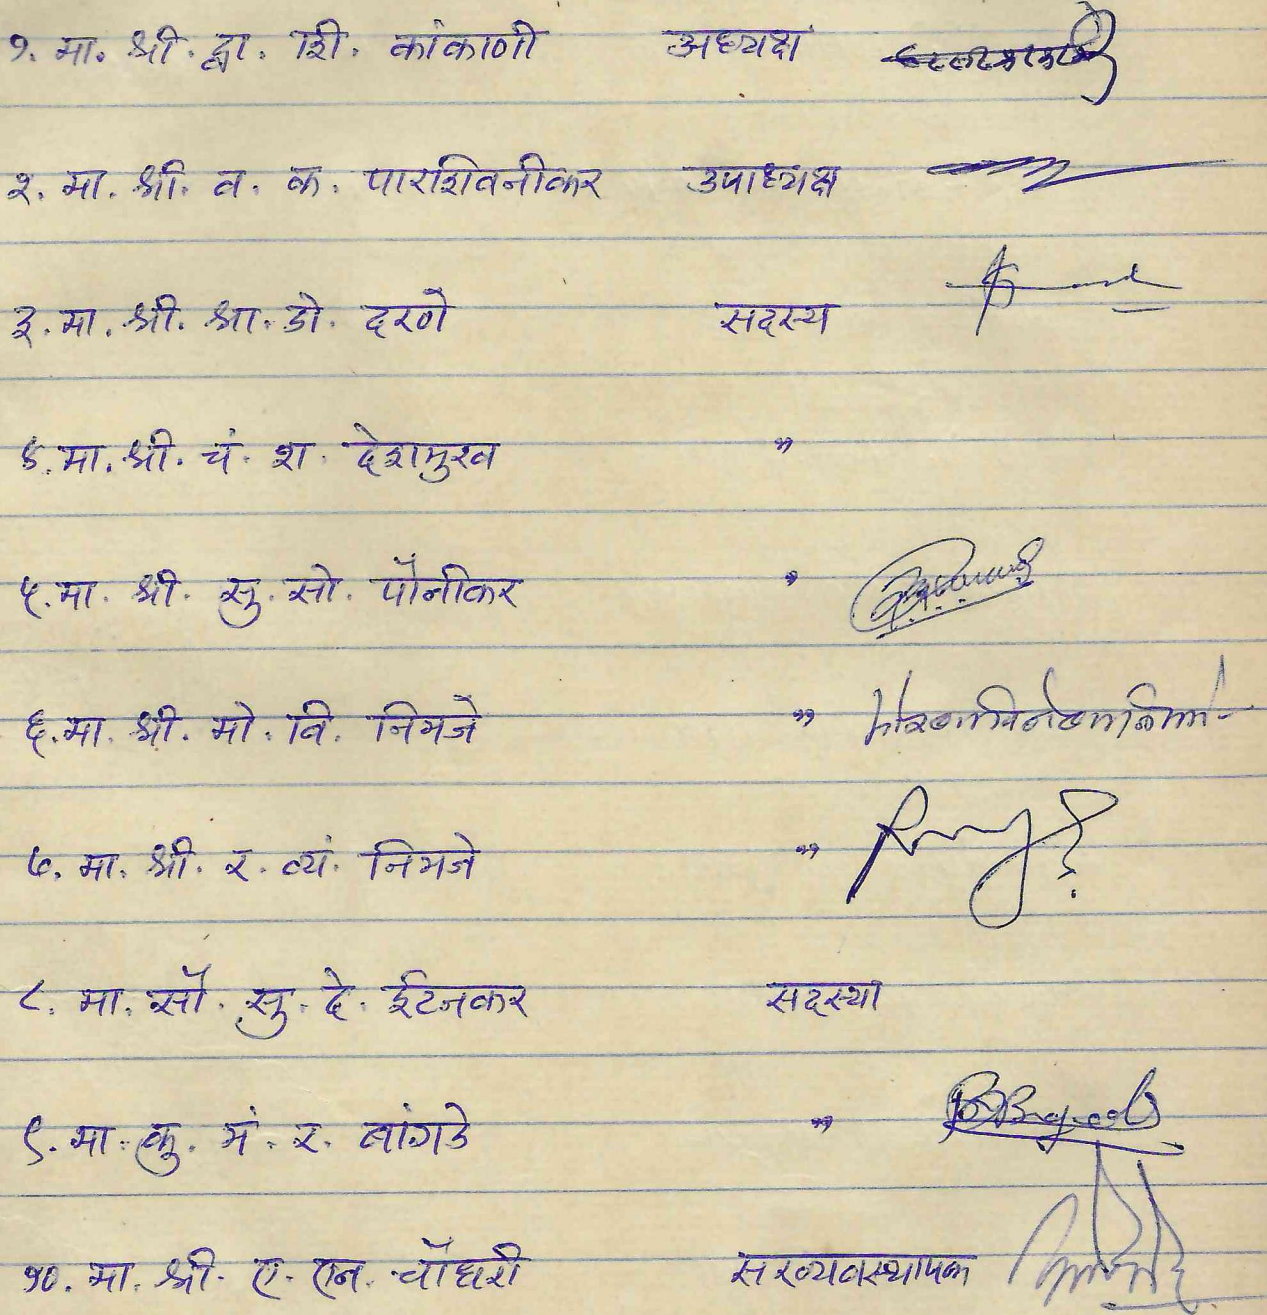 १. मा. श्री. द्वा. शि. कांकाणी अध्यक्ष
२. मा. श्री. व. क. पारशिवनीकर उपाध्यक्ष
३. मा. श्री. श्रा. डो. दरणे सदस्य
४. मा. श्री. चं. श. देशमुख "
५. मा. श्री. सु. सो. पौनीकर "
६. मा. श्री. मो. वि. निमजे "
७. मा. श्री. र. व्यं. निमजे "
८. मा. सौ. सु. दे. ईटनकर सदस्या
९. मा. कु. मं. र. बांगडे "
१०. मा. श्री. ए. एन. चौधरी सरव्यवस्थापक